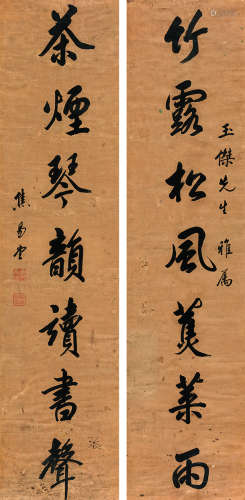 竹露松風蕉葉雨
玉傑先生 雅屬
茶煙琴韻讀書聲
焦易堂